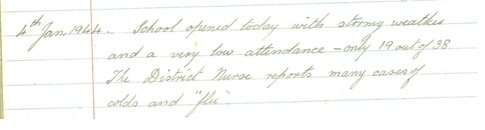 4th Jan. 1944. School opened today with stormy weather
and a very low attendance – only 19 out of 38.
The District Nurse reports many cases of
colds and "flu".